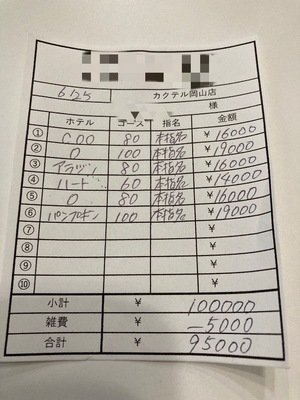 6/25 カクテル岡山店
様
ホテル コース 指名 金額
① COO 80 本指名 ¥16000
② O 100 本指名 ¥19000
③ アラジン 80 本指名 ¥16000
④ ハード 60 本指名 ¥14000
⑤ O 80 本指名 ¥16000
⑥ パンプキン 100 本指名 ¥19000
⑦ ¥
⑧ ¥
⑨ ¥
⑩ ¥
小計 ¥ 100000
雑費 ¥ -5000
合計 ¥ 95000